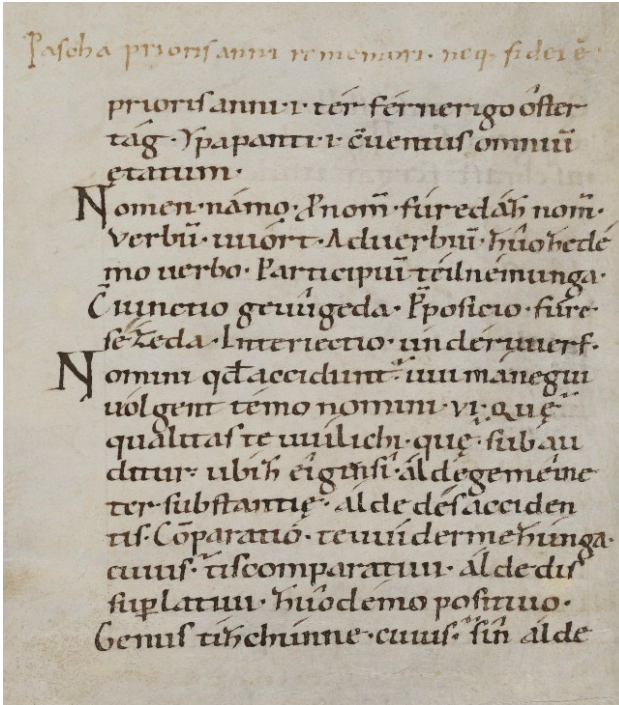 Pascha prioris anni rememorari. neq. fidei ē.
prioris anni .i. tér férnerigo ôster
tág. Ypapanti .i. cōuentus omniū
ętatum.
Nomen. námo. P̄nom̄. fúredáh nom̄.
Verbū. uuórt. Aduerbiū. zûohedé
mo uerbo. Participiū téilnémunga.
Cōiunctio geuûgeda. P̄posicio. fúre
sézeda. Interiectio. únderuuerf.
Nomini qđ accidunt. uuî mánegiu
uólgent témo nomini. VI. Quę.
qualitas te uuîlichi. quę. subau
ditur. ubiz eîgen sî. álde geméine
ter substantię. álde dés acciden
tis. Cōparatió. te uuídermezúnga.
cuius. tis comparatiui. álde dis
suplatiui. zûo démo positiuo.
Genus tíz chúnne. cuius. sín álde